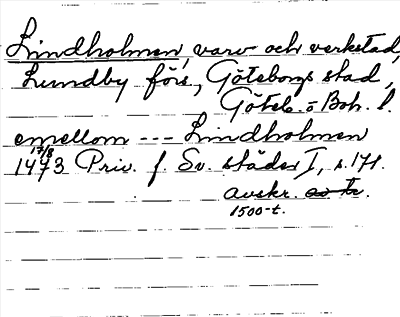 Lindholmen, varv och verkstad,
Lundby förs, Göteborgs stad,
Göteb. o Boh. l.
emellom --- Lindholmen
17/8
1473 Priv. f. Sv. städer I, s. 171.
avskr.
1500-t.